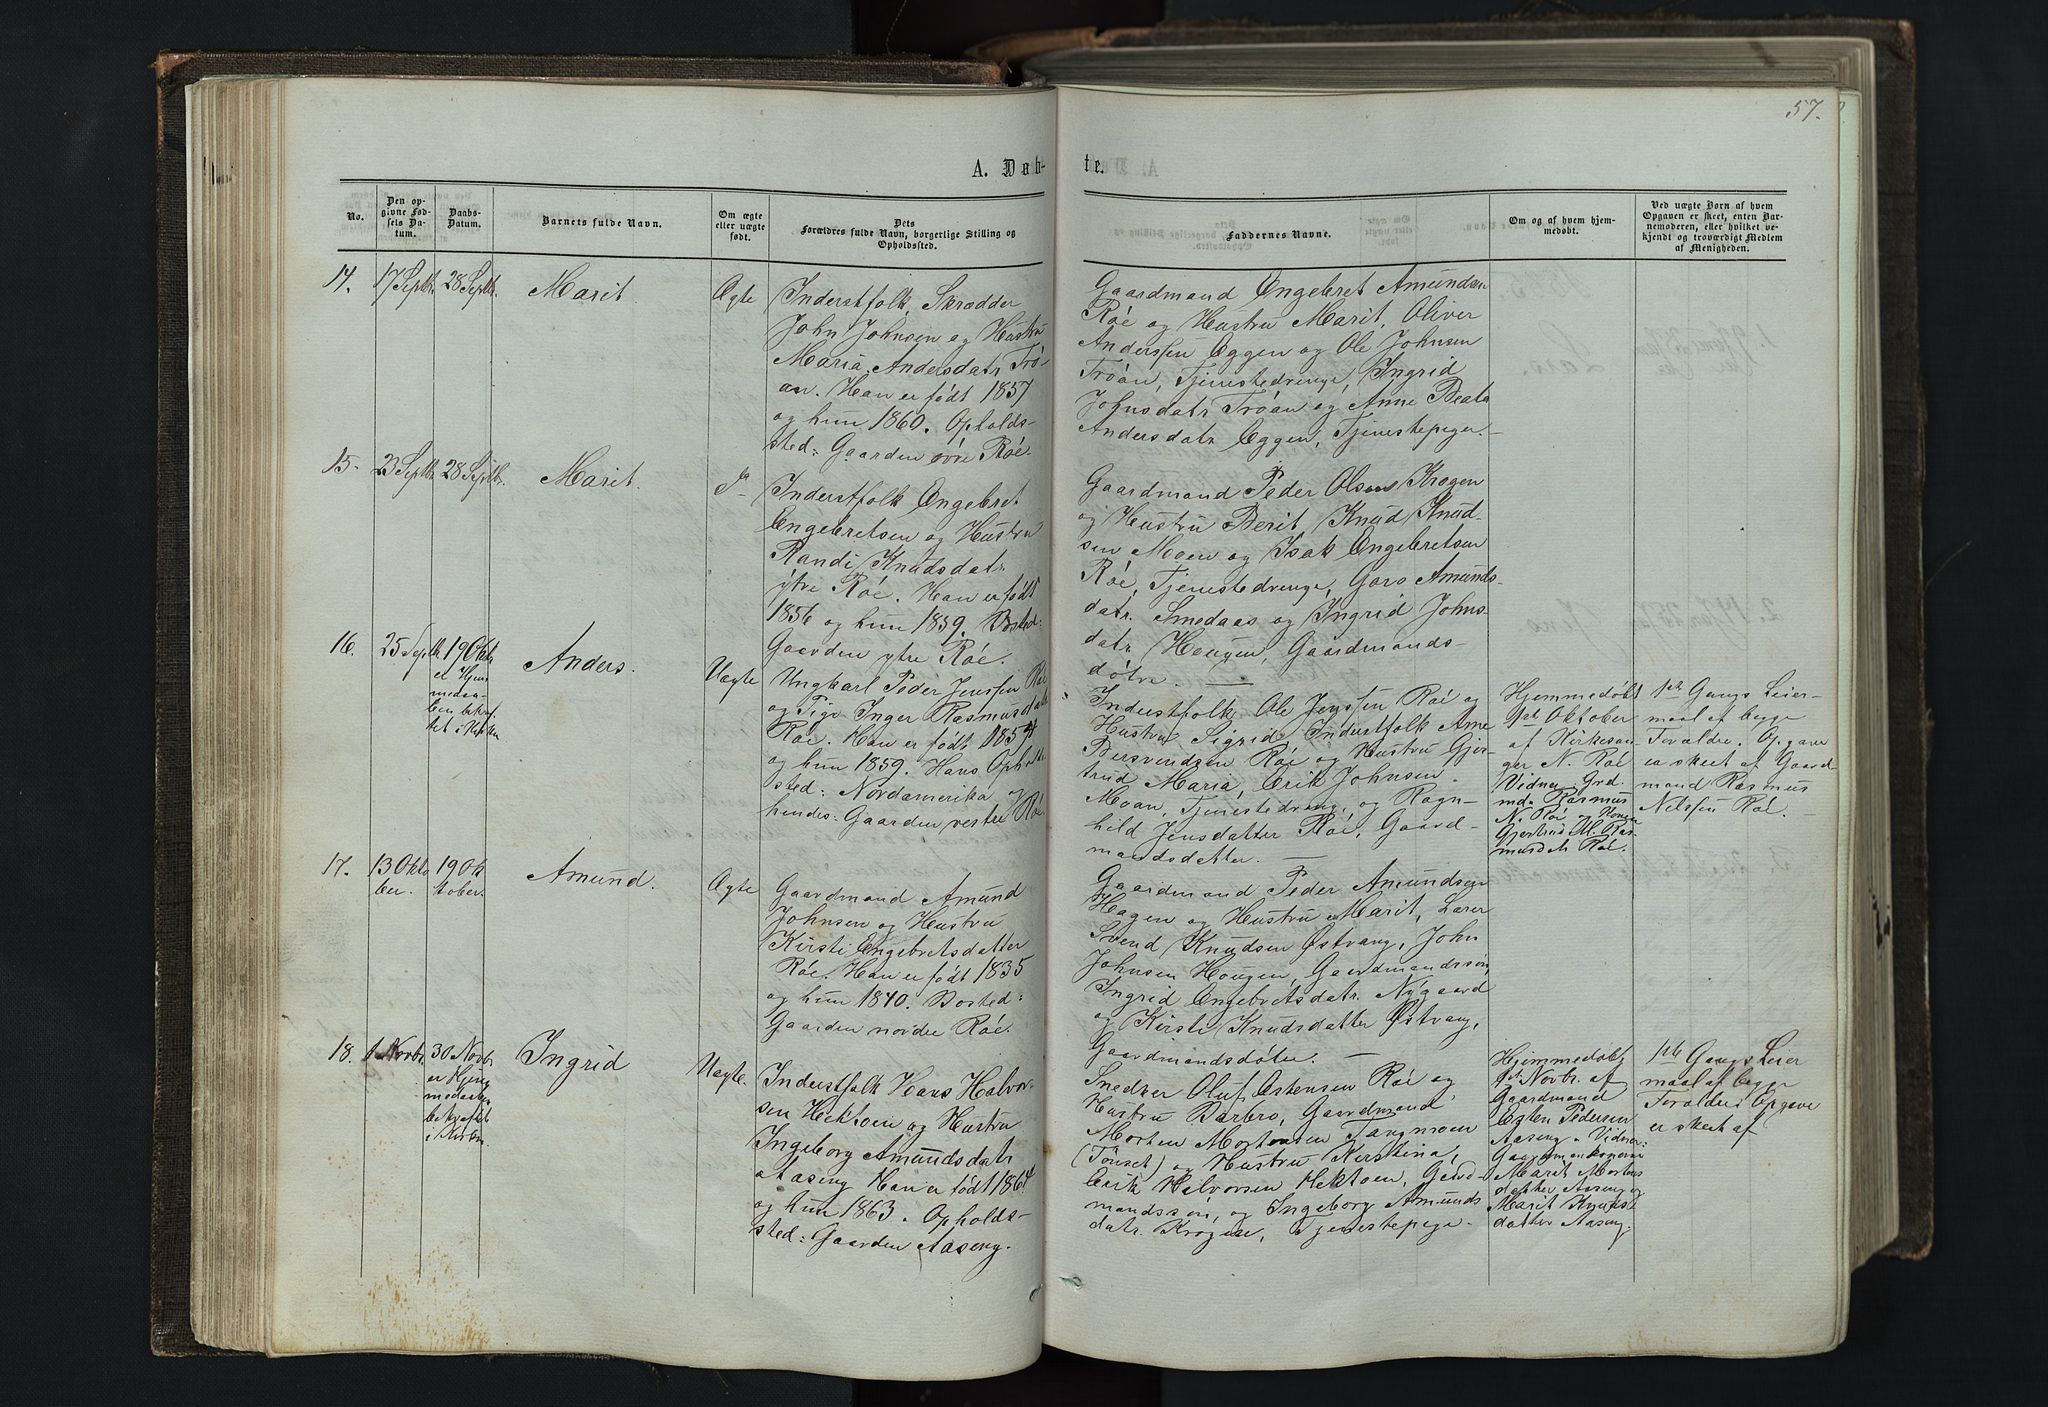 57.
A. Døb-
te.
No.
Den op-
givne Fød-
sels Da-
tum.
Daabs-
Datum.
Barnets fulde Navn.
Om ægte
eller uægte
født.
Dets
Forældres fulde Navn, borgerlige Stilling og
Opholdssted.
Faddernes Navne.
Om og af hvem hjem-
medøbt.
Ved uægte Børn af hvem
Opgaven er skeet, enten Bar-
nemoderen, eller hvilket ve-
kjendt og troværdigt Medlem
af Menigheden.
14.
17 Septbr.
28 Septbr.
Marit.
Ægte
Inderstfolk, Skrædder
John Johnsen og Hustru
Maria Andersdatr Trø-
an. Han er født 1857
og hun 1860. Opholds-
sted: Gaarden øvre Røe.
Gaardmand Engebret Amundsen
Røe og Hustru Marit, Oliver
Anderssen Eggen og Ole Johnsen
Trøan, Tjenestedrenge, Ingrid
Johnsdatr Trøan og Anne Beata
Andersdatr Eggen, Tjenestepiger.
15.
23 Septbr.
28 Septbr.
Marit.
Do
Inderstfolk Engebret
Engebretsen og Hustru
Randi Knudsdatr.
ytre Røe. Han er født
1856 og hun 1859. Bosted:
Gaarden ytre Røe.
Gaardmand Peder Olsen Krogen
og Hustru Berit, Knud Knud-
sen Moen og Isak Engebretsen
Røe, Tjenestedrenge, Goro Amunds-
datr. Smedaas og Ingrid Johns-
datr. Hougen, Gaardmands-
døtre.
16.
25 Septbr
19 Oktr
er Hjem
medaa-
ben bekræf-
tet i Kirken
Anders.
Uægte
Ungkarl Peder Jenssen Røe
og Pige Inger Rasmusdatter
Røe. Han er født 1854
og hun 1859. Hans Opholds-
sted: Nordamerika,
hendes: Gaarden vestre Røe.
Inderstfolk Ole Jenssen Røe og
Hustru Sigrid, Inderstfolk Arne
Bersvendsen Røe og Hustru Gjer-
trud Maria, Erik Johnsen
Moan, Tjenestedreng, og Ragn-
hild Jensdatter Røe, Gaard-
mandsdatter.
Hjemmedøbt
1ste Oktober
af Kirkesan-
ger N. Røe
Vidner Grd.
md. Rasmus
N. Røe og Konen
Gjertrud M. Ras
musdatr. Røe.
1ste Gangs Leier-
maal af begge
Forældre. Opgaven
er skeet af Gaard
mand Rasmus
Nilssen Røe.
17.
13 Okto
ber.
19 Ok
tober.
Amund.
Ægte
Gaardmand Amund
Johnsen og Hustru
Kirsti Engebretsdatter
Røe. Han er født 1835
og hun 1840. Bosted:
Gaarden nordre Røe.
Gaardmand Peder Amundsen
Hagen og Hustru Marit, Lærer
Svend Knudsen Østvang, John
Johnsen Hougen, Gaardmandssøn,
Ingrid Engebretsdatr. Nygaard
og Kirsti Knudsdatter Østvang,
Gaardmandsdøtre.
18.
1 Novbr.
30 Novbr.
er Hjem
medaaben
bekræftet
i Kirken.
Ingrid
Uægte.
Inderstfolk Hans Halvor-
sen Hektoen og Hustru
Ingeborg Amundsdatr.
Aaseng. Han er født 1864
og hun 1863. Opholds-
sted: Gaarden Aaseng.
Snedker Oluf Estensen Røe og
Hustru Barbro, Gaardmand
Morten Mortensen Tangmoen
(Tönset) og Hustru Kirstina,
Erik Halvorsen Hektoen, Gaard-
mandssøn, og Ingeborg Amunds
datr. Krogen, Tjenestepige.
Hjemmedøbt
1ste Novbr. af
Gaardmand
Esten Pedersen
Aaseng. Vidner:
Gaardmandskonerne
Marit Mortens
datter Aaseng og
Marit Knuds
datter Aaseng.
1ste Gangs Leier
maal af begge
Forældre. Opgave
er skeet af